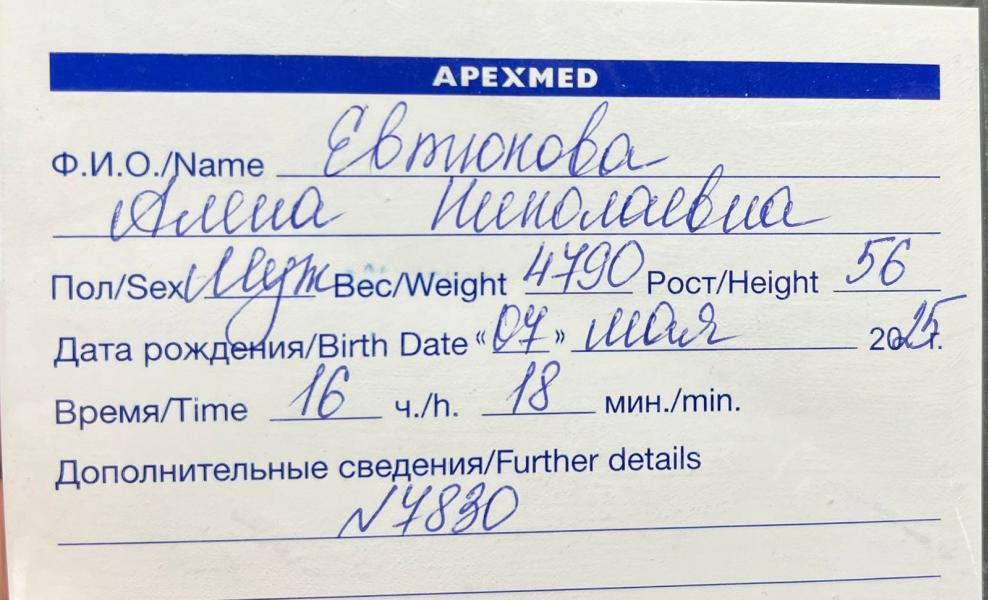 APEXMED
Ф.И.О./Name Евтюхова
Алена Николаевна
Пол/Sex Муж Вес/Weight 4790 Рост/Height 56
Дата рождения/Birth Date «07» мая 2025г.
Время/Time 16 ч./h. 18 мин./min.
Дополнительные сведения/Further details
N7830